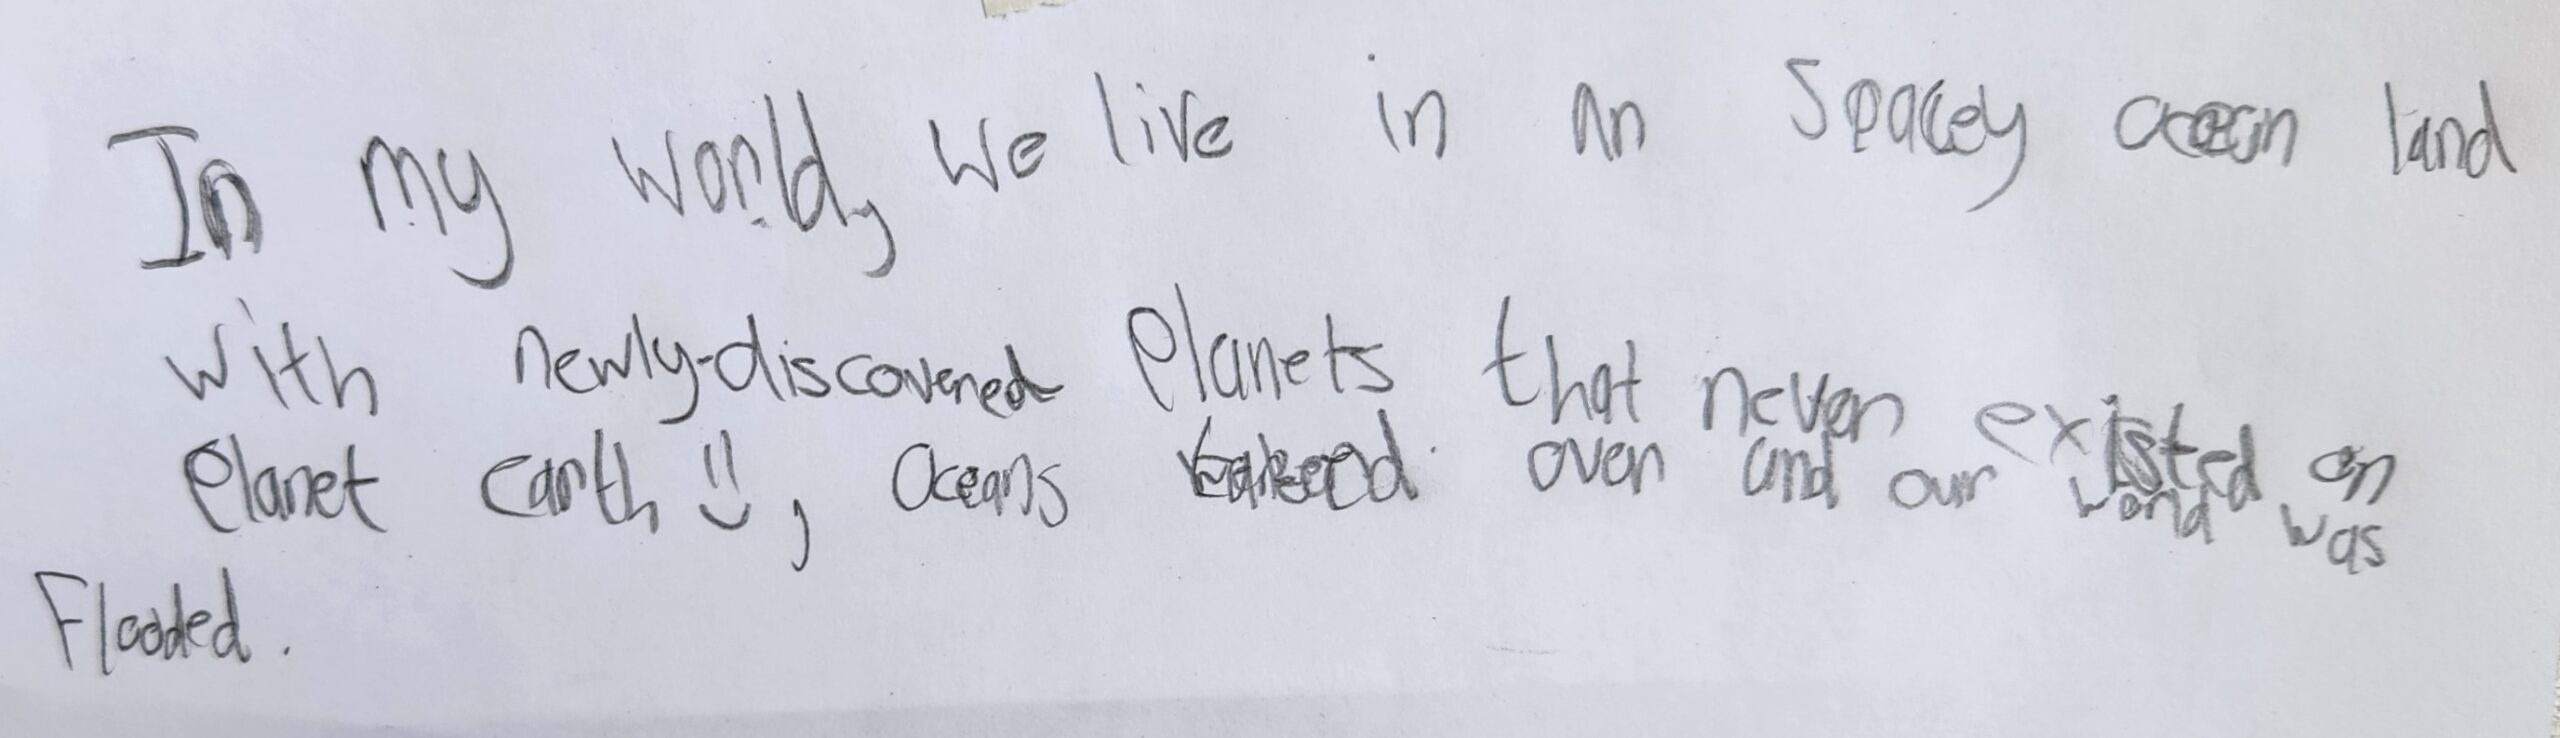 In my world, we live in an spacey ocean land
with newly-discovered planets that never existed on
planet earth !! , oceans over and our world was
Flooded.